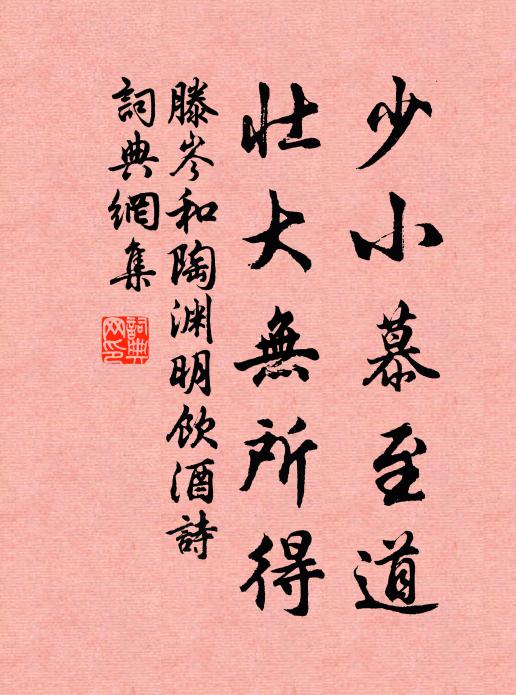 少小慕至道
壯大無所得
滕岑和陶渊明飲酒詩
詞典網集
詞典網印